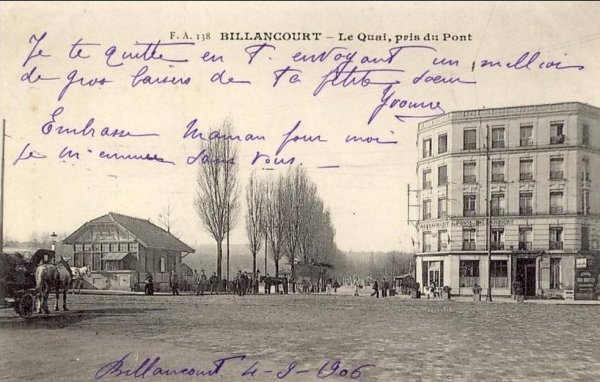 F. A. 138 BILLANCOURT - Le Quai, pris du Pont
Je te quitte en t'envoyant un million
de gros baisers de ta ptite soeur
Yvonne
Embrasse Maman pour moi
Je m'ennuie sans vous.
Billancourt 4-9-1906